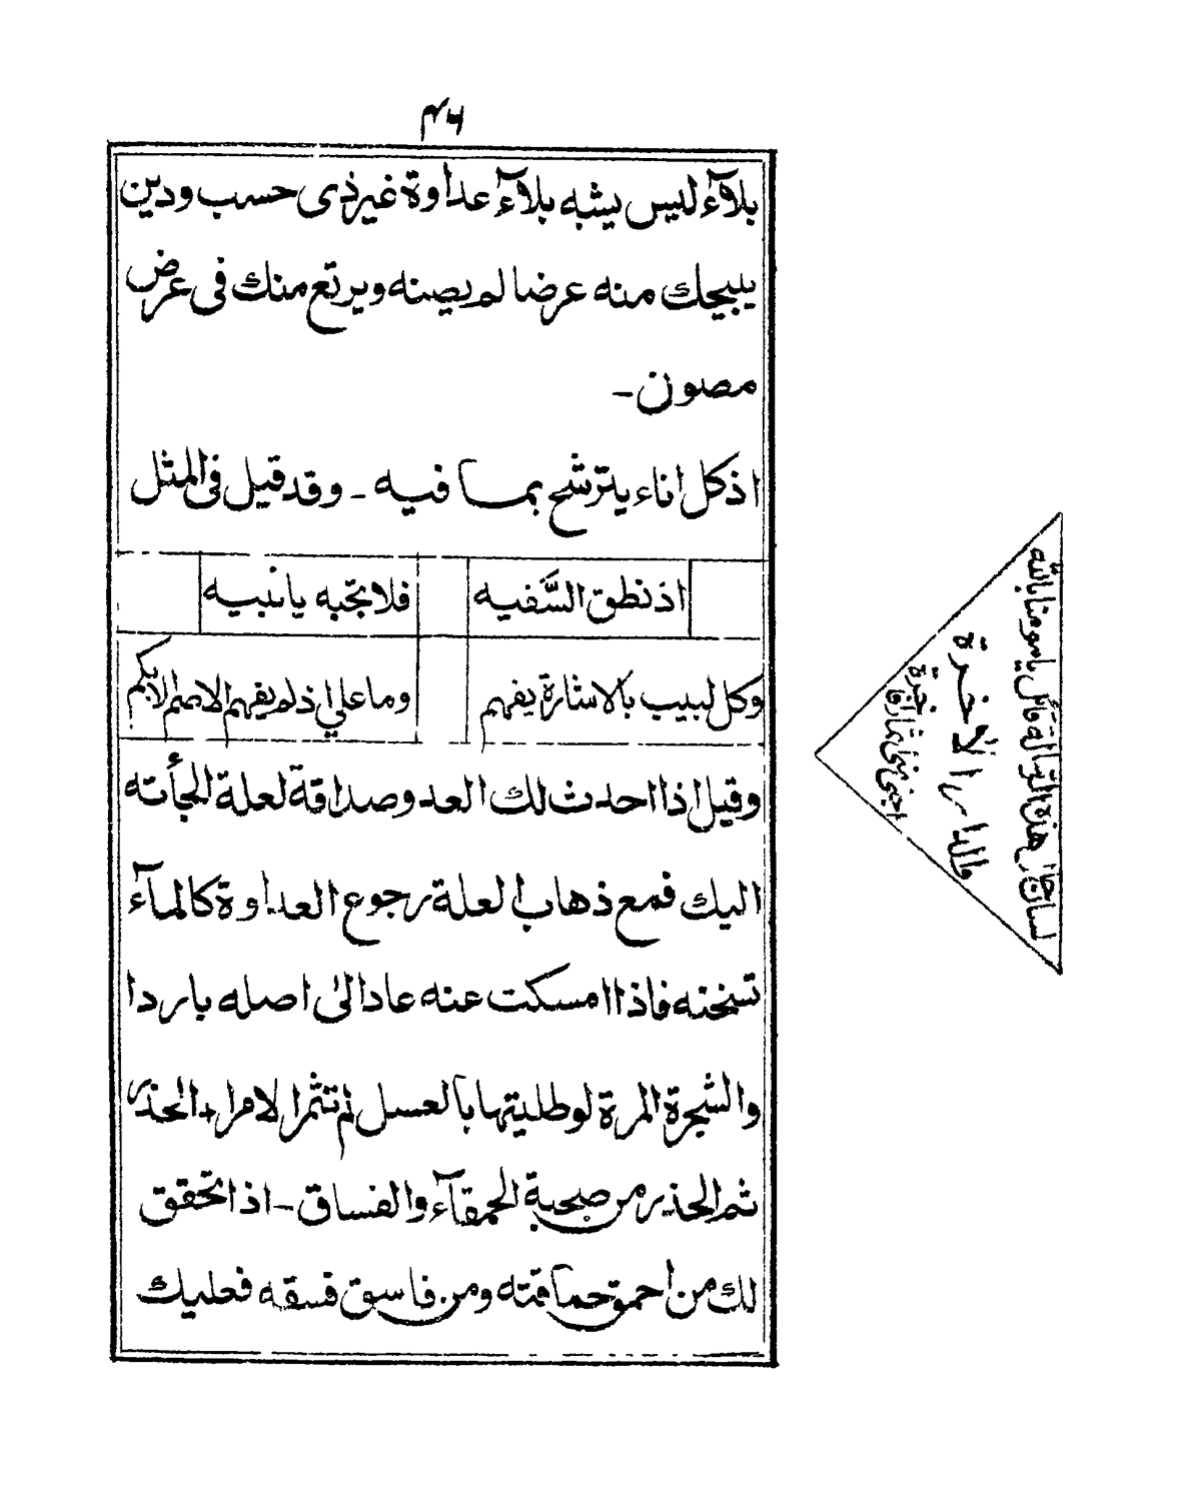 ۴۶
بلآء ليس يشبه بلآء عداوة غيرذى حسب ودين
يبيحك منه عرضا لم يصنه ويرتع منك فى عرض
مصون ـ
اذ كل اناء يترشح بما فيه ـ وقد قيل فى المثل
اذ نطق السَّفيه فلا تجبه يا نبيه
وكل لبيب بالاشارة يفهم وما على اذ لم يفهم الاصم الابكم
وقيل اذا احدث لك العدو صداقة لعلة الجأته
اليك فمع ذهاب العلة رجوع العداوة كالمآء
تسخنه فاذا امسكت عنه عاد الىٰ اصله باردا
والشجرة المرة لو طليتها بالعسل لم تثمر الا مرا + الحذر
ثم الحذر من صحبة الحمقآء والفساق ـ اذا تحقق
لك من احمق حماقته ومن فاسق فسقه فعليك
هذه الرسالة قائل يا مومنا بالله
والدار الاخرة